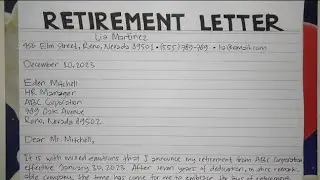 RETIREMENT LETTER
Lia Martinez
456 Elm Street, Reno, Nevada 89501 • (555) 789-
December 10, 2023
Eden Mitchell
HR Manager
ABC Corporation
989 Oak Avenue
Reno, Nevada 89502
Dear Mr. Mitchell,
It is with mixed emotions that I announce my retirement from ABC Corporation
effective January 30, 2023. After seven years of dedication, in this remark-
able company, the time has come for me to embrace the of retirement